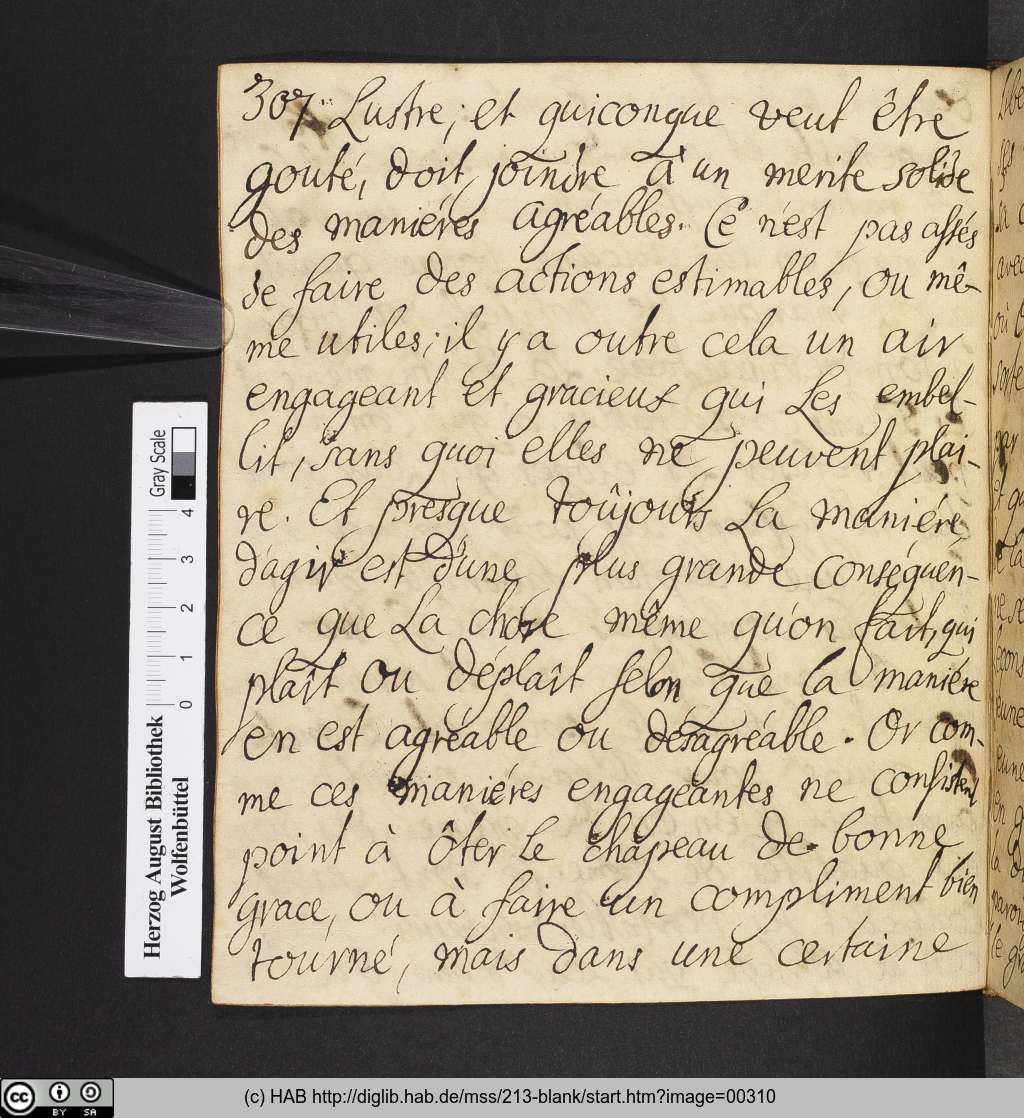 307. Lustre; et quiconque veut être
gouté, doit joindre à un merite solide
des maniéres agréables. Ce n'est pas assés
de faire des actions estimables, ou mê-
me utiles; il y a outre cela un air
engageant et gracieux qui Les embel-
lit, sans quoi elles ne peuvent plai-
re. Et presque toûjours La maniére
d'agir est d'une plus grande conséquen-
ce que La chose même qu'on fait, qui
plaît ou déplaît selon que la maniére
en est agréable ou désagréable. Or com-
me ces maniéres engageantes ne consistent
point à ôter Le chapeau de bonne
grace, ou à faire un compliment bien
tourné, mais dans une certaine
Gray Scale
0 1 2 3 4
Herzog August Bibliothek
Wolfenbüttel
cc BY SA
(c) HAB http://diglib.hab.de/mss/213-blank/start.htm?image=00310